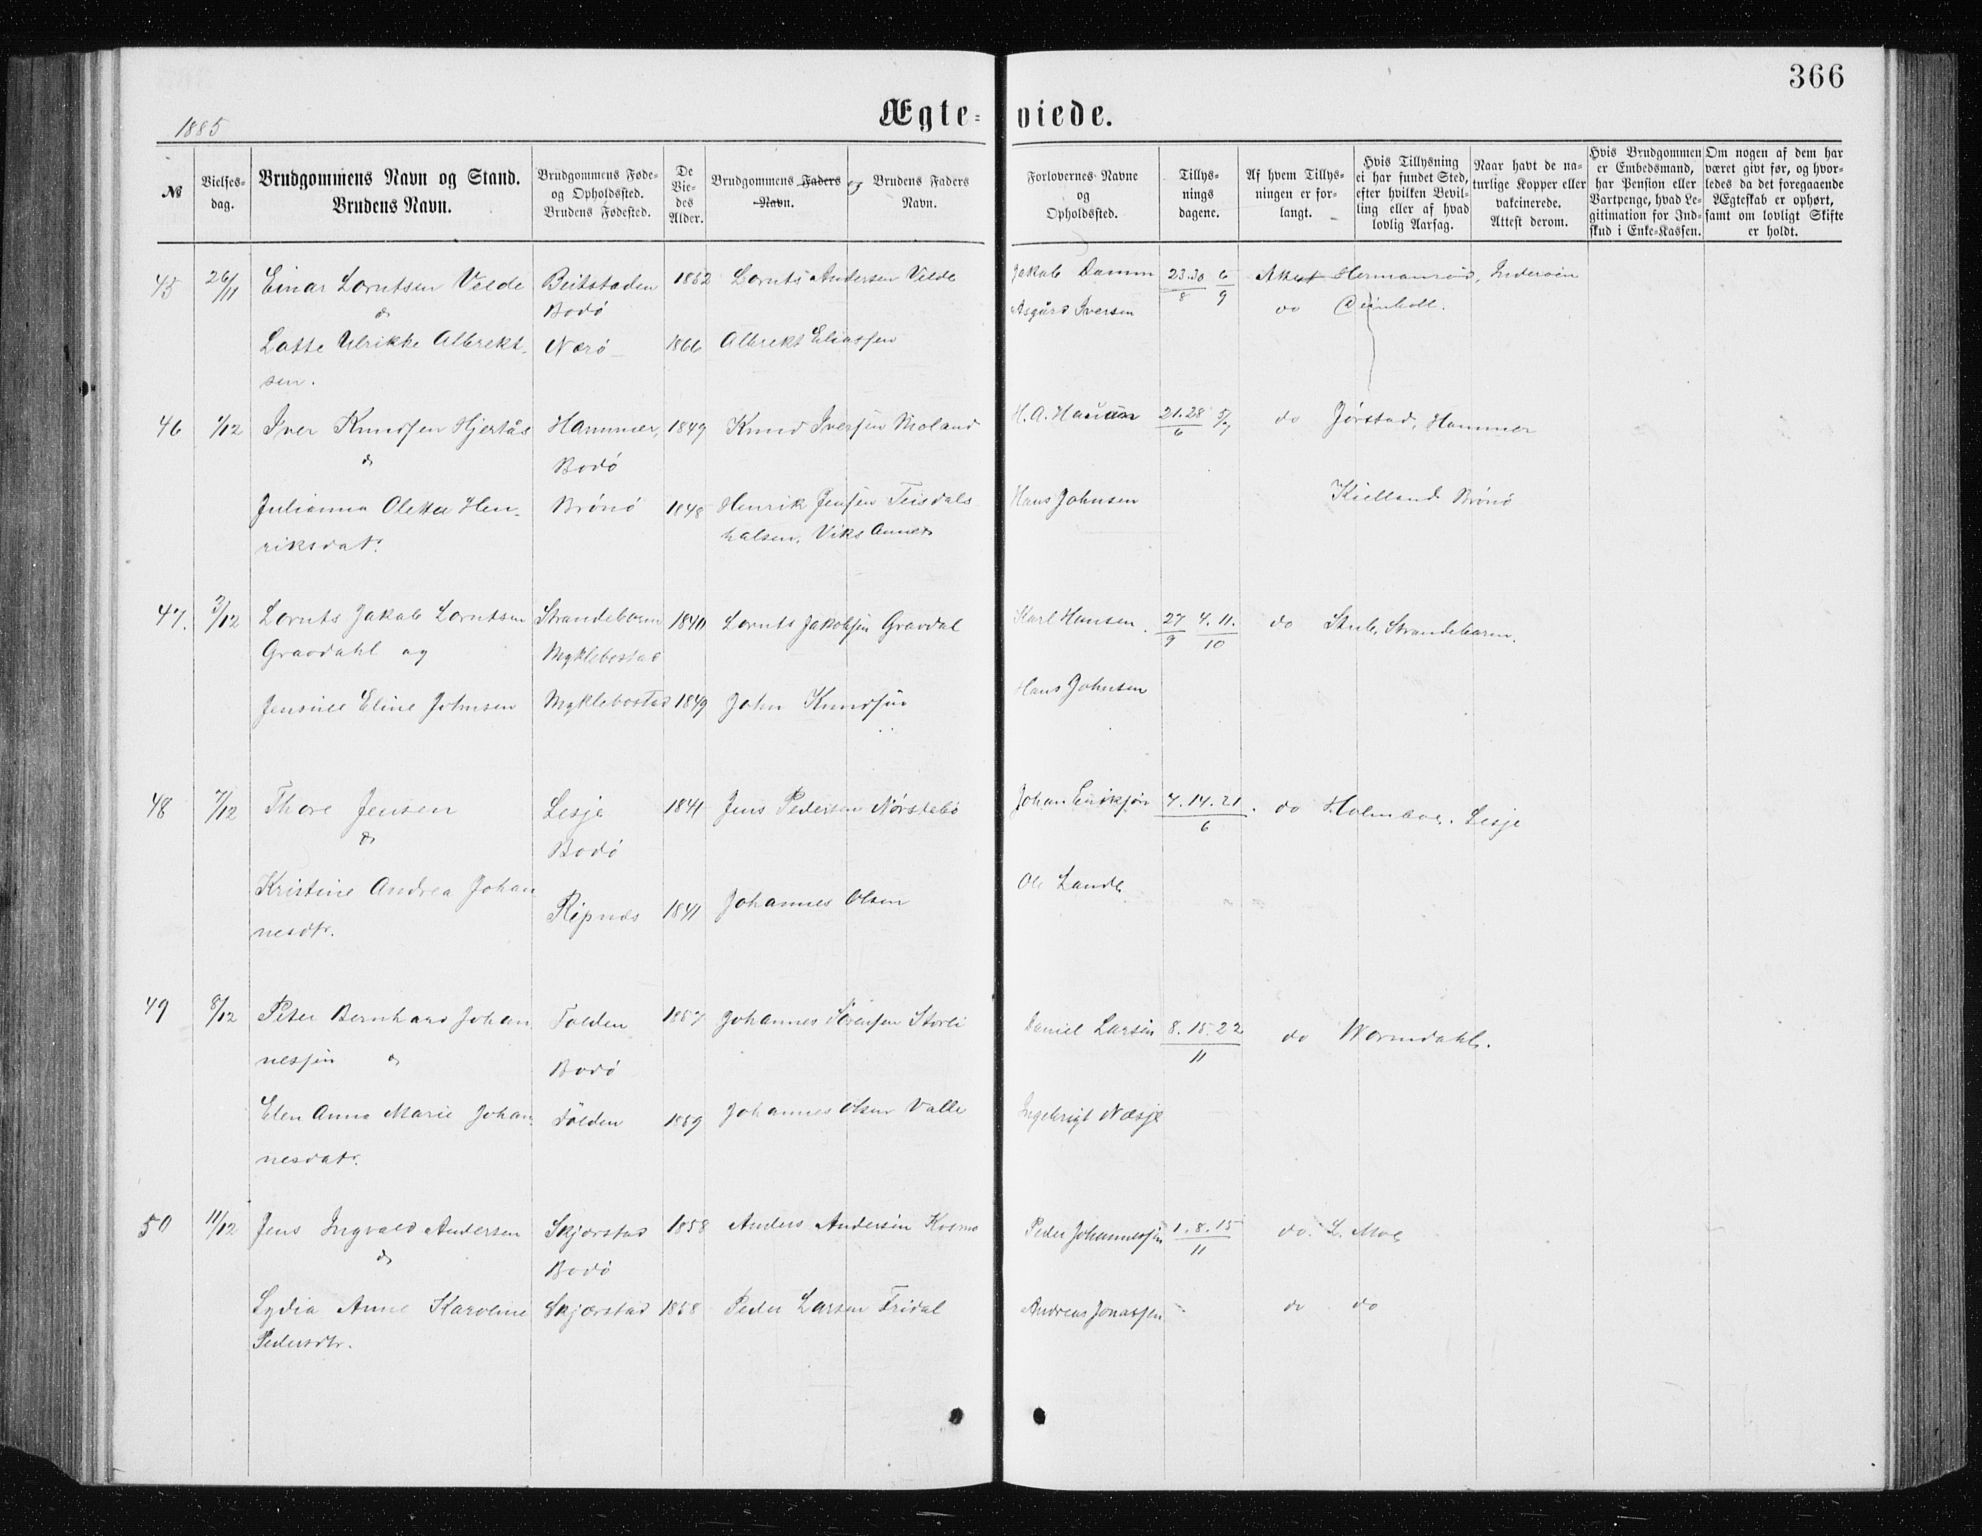 366
1885
Ægte-
viede.
№
Vielses-
dag.
Brudgommens Navn og Stand.
Brudens Navn.
Brudgommens Føde-
og Opholdssted.
Brudens Fødested.
De
Vie-
des
Alder.
Brudgommens Faders og Brudens Faders
Navn. Navn.
Forlovernes Navne
og
Opholdssted.
Tillys-
nings
dagene.
Af hvem Tillys-
ningen er for-
langt.
Hvis Tillysning
ei har fundet Sted,
efter hvilken Bevil-
ling eller af hvad
lovlig Aarsag.
Naar havt de na-
turlige Kopper eller
vakcinerede.
Attest derom.
Hvis Brudgommen
er Embedsmand,
har Pension eller
Vartpenge, hvad Le-
gitimation for Ind-
skud i Enke-Kassen.
Om nogen af dem har
været givt før, og hvor-
ledes da det foregaaende
Ægteskab er ophørt,
samt om lovligt Skifte
er holdt.
45 26/11 Einar Lorntsen Velde Beitstaden 1852 Lornts Andersen Velde Jakob Damm 23.30/8 6/9 Attest Indersøen
& Bodö
Asgård Iversen do
Lotte Ulrikke Albrekt- Nærö 1866 Albrekt Eliassen
sen.
46 1/12 Iver Knudsen Hjertås Hammer, 1849 Knud Iversen Moland H. A. 21.28/6 5/7 do Jørstad, Hammer
& Bodö
Julianna Oletta Hen- Brönö 1848 Henrik Jensen Hans Johnsen Kielland Brönö
riksdatr. halsen, Viks Annex
47. 3/12 Lornts Jakob Lorntsen Strandebarm 1840 Lornts Jakobsen Gravdal Karl Hansen. 27/9 4.11./10 do Stub, Strandebarm.
Gravdahl og Myklebostad
Jensine Eline Johnsen Myklebostad 1849 John Knudsen Hans Johnsen
48 7/12 Thore Jensen Lesje 1841 Jens Pedersen Nørstebö Johan 7.14.21./6 do Holmboe. Lesje
& Bodö
Kristine Andrea Johan Ripnæs 1841 Johannes Olsen Ole Lande
nesdtr.
49 8/12 Peter Bernhard Johan Folden 1857 Johannes Sörensen Storli Daniel Larsen 8.15.22/11 do Wormdahl.
nessen & Bodö
Elen Anna Marie Johan- Folden 1859 Johannes Olsen Valle Ingebrigt Næsje
nesdatr.
50 11/12 Jens Ingvald Andersen Skjærstad 1858 Anders Andersen Kosmo Peder Johannessen 1.8.15/11 do. L. Moe
& Bodö
Lydia Anne Karoline Skjærstad 1858 Peder Larsen Fridal Andreas Jonassen do do
Pedersdtr.